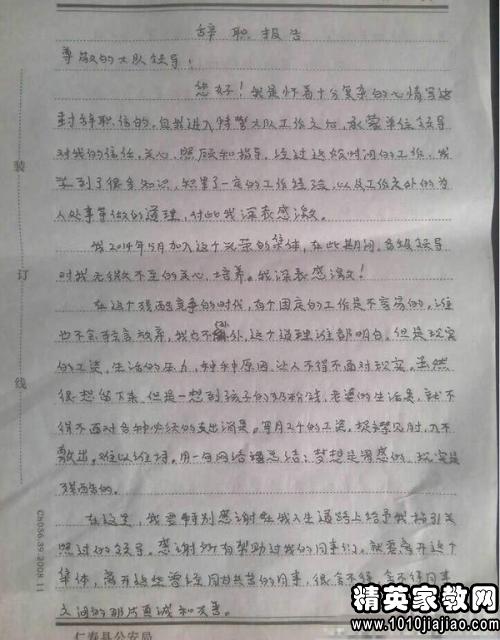 辞职报告
尊敬的大队领导:
您好!我是怀着十分复杂的心情写这
封辞职信的。自我进入特警大队工作之后,承蒙单位领导
对我的信任、关心、照顾和指导,经过这段时间的工作,我
学到了很多知识,积累了一定的工作经验,以及工作之外的为
人处事等做的道理,对此我深表感激。
我2014年5月加入这个光荣的集体,在此期间,各级领导
对我无微不至的关心、培养。我深表感激!
在这个残酷竞争的时代,有个固定的工作是不容易的。谁
也不会轻言放弃,我也不例外,这个道理谁都明白。但是现实
的工资,生活的压力,种种原因,让人不得不面对现实。虽然
很想留下来,但是一想到孩子的奶粉钱,老婆的生活费,就不
得不面对各种必须的支出消费。每月2千的工资,捉襟见肘,入不
敷出。难以维持。用一句网络语总结:梦想是满感的,现实是
残酷的。
在这里,我要特别感谢在我人生道路上给予我指引关
照过的领导。感谢所有帮助过我的同事们。就要离开这个
集体,离开这些曾经同甘共苦的同事,很舍不得,舍不得同事
之间的那片真诚和友善。
仁寿县公安局
装
订
线
Ch036.39 2008.11
精英家教网
www.1010jiajiao.com